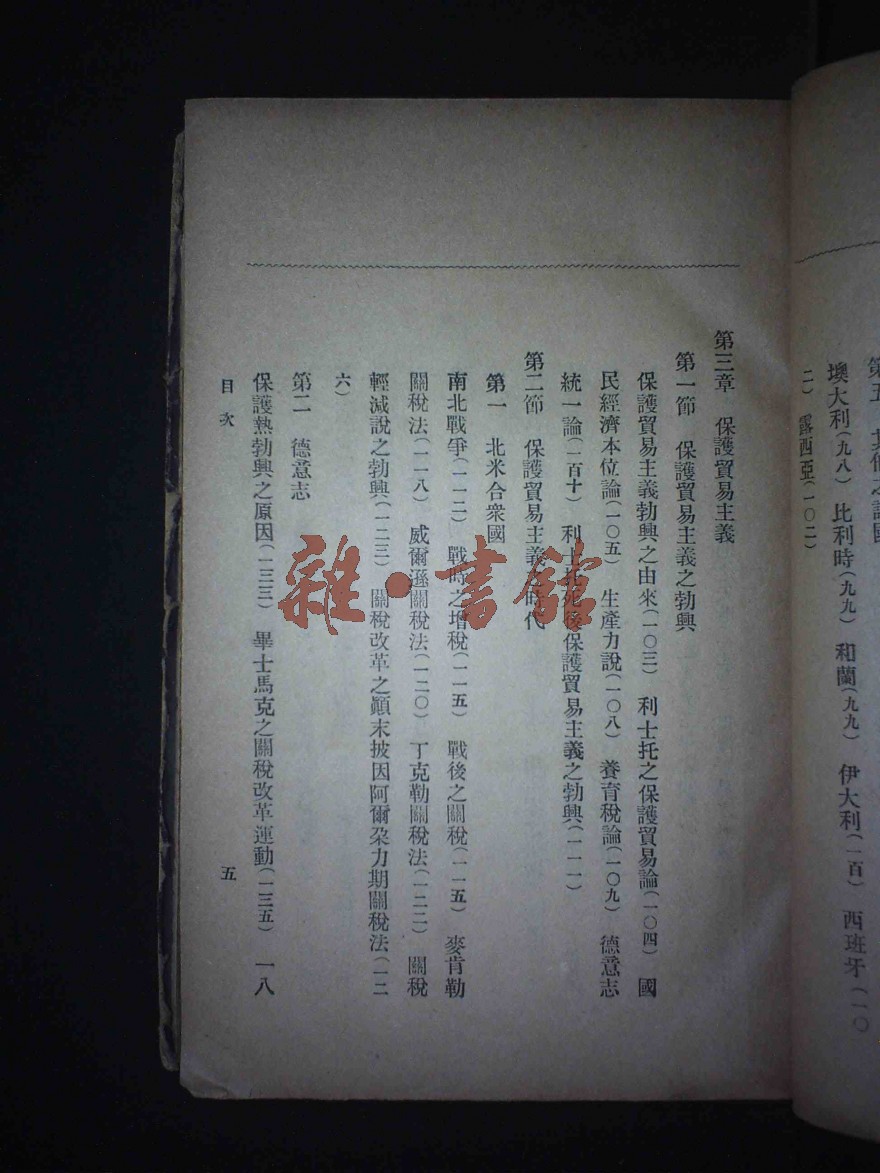 第五 其他之諸國
墺大利(九八) 比利時(九九) 和蘭(九九) 伊大利(一百) 西班牙(一〇
二) 露西亞(一〇二)
第三章 保護貿易主義
第一節 保護貿易主義之勃興
保護貿易主義勃興之由來(一〇三) 利士托之保護貿易論(一〇四) 國
民經濟本位論(一〇五) 生產力說(一〇八) 養育稅論(一〇九) 德意志
統一論(一百十) 利士托死後保護貿易主義之勃興(一一一)
第二節 保護貿易主義之時代
第一 北米合衆國
南北戰爭(一一二) 戰時之增稅(一一五) 戰後之關稅(一一五) 麥肯勒
關稅法(一一八) 威爾遜關稅法(一二〇) 丁克勒關稅法(一二二) 關稅
輕減說之勃興(一二三) 關稅改革之顚末披因阿爾朶力期關稅法(一二
六)
第二 德意志
保護熱勃興之原因(一三三) 畢士馬克之關稅改革運動(一三五) 一八
目次 五
雜·書館